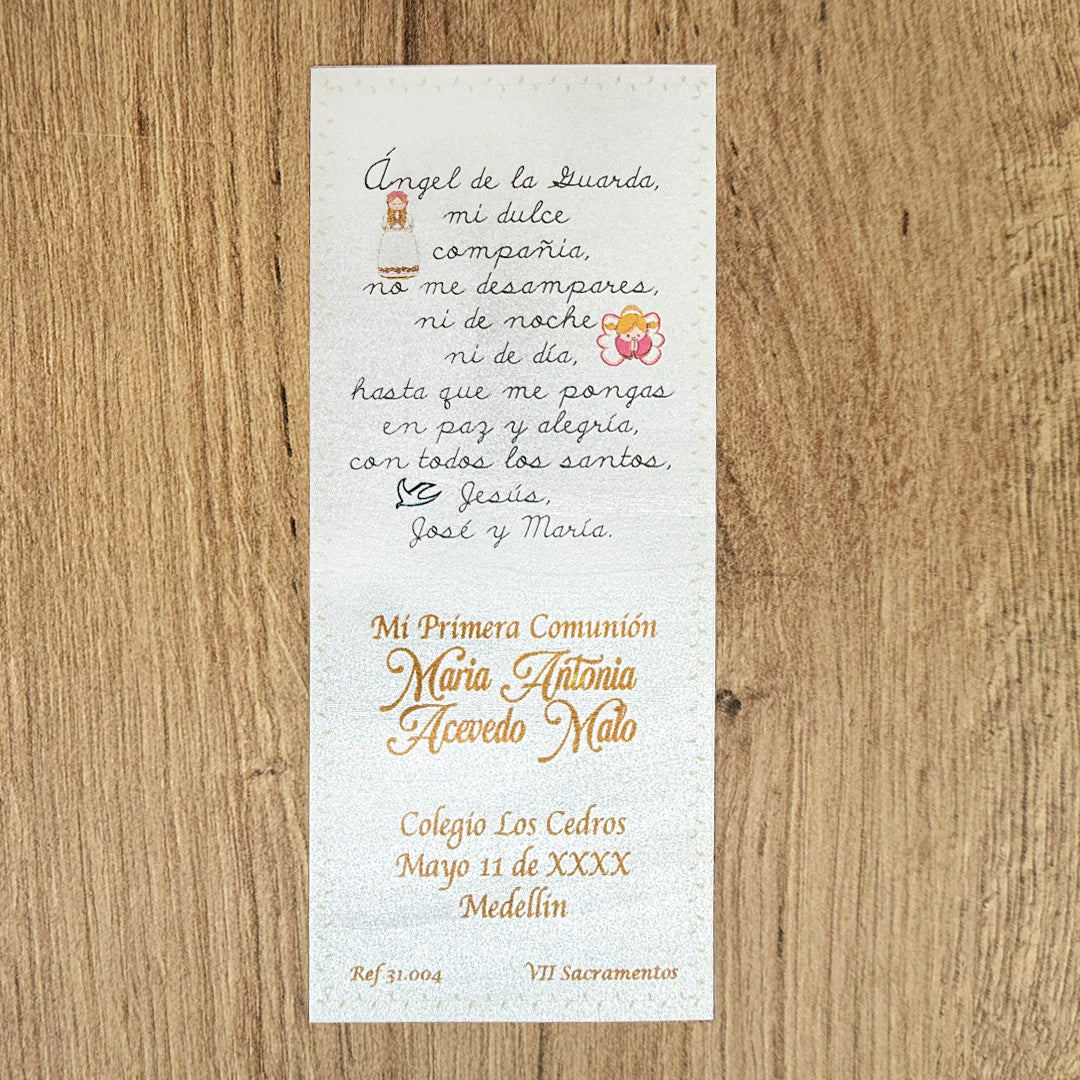 Ángel de la Guarda,
mi dulce
compañia,
no me desampares,
ni de noche
ni de día,
hasta que me pongas
en paz y alegría,
con todos los santos,
Jesús,
José y María.
Mi Primera Comunión
Maria Antonia
Acevedo Malo
Colegio Los Cedros
Mayo 11 de XXXX
Medellín
Ref 31.004 VII Sacramentos